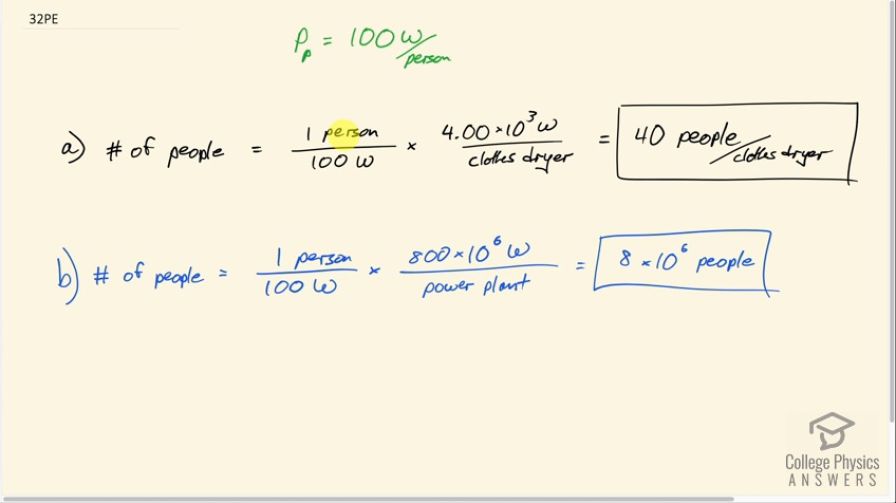 32PE
P_p = 100 W/person
a) # of people = 1 person / 100 W × 4.00 × 10³ W / clothes dryer = 40 people/clothes dryer
b) # of people = 1 person / 100 W × 800 × 10⁶ W / power plant = 8 × 10⁶ people
College Physics
ANSWERS